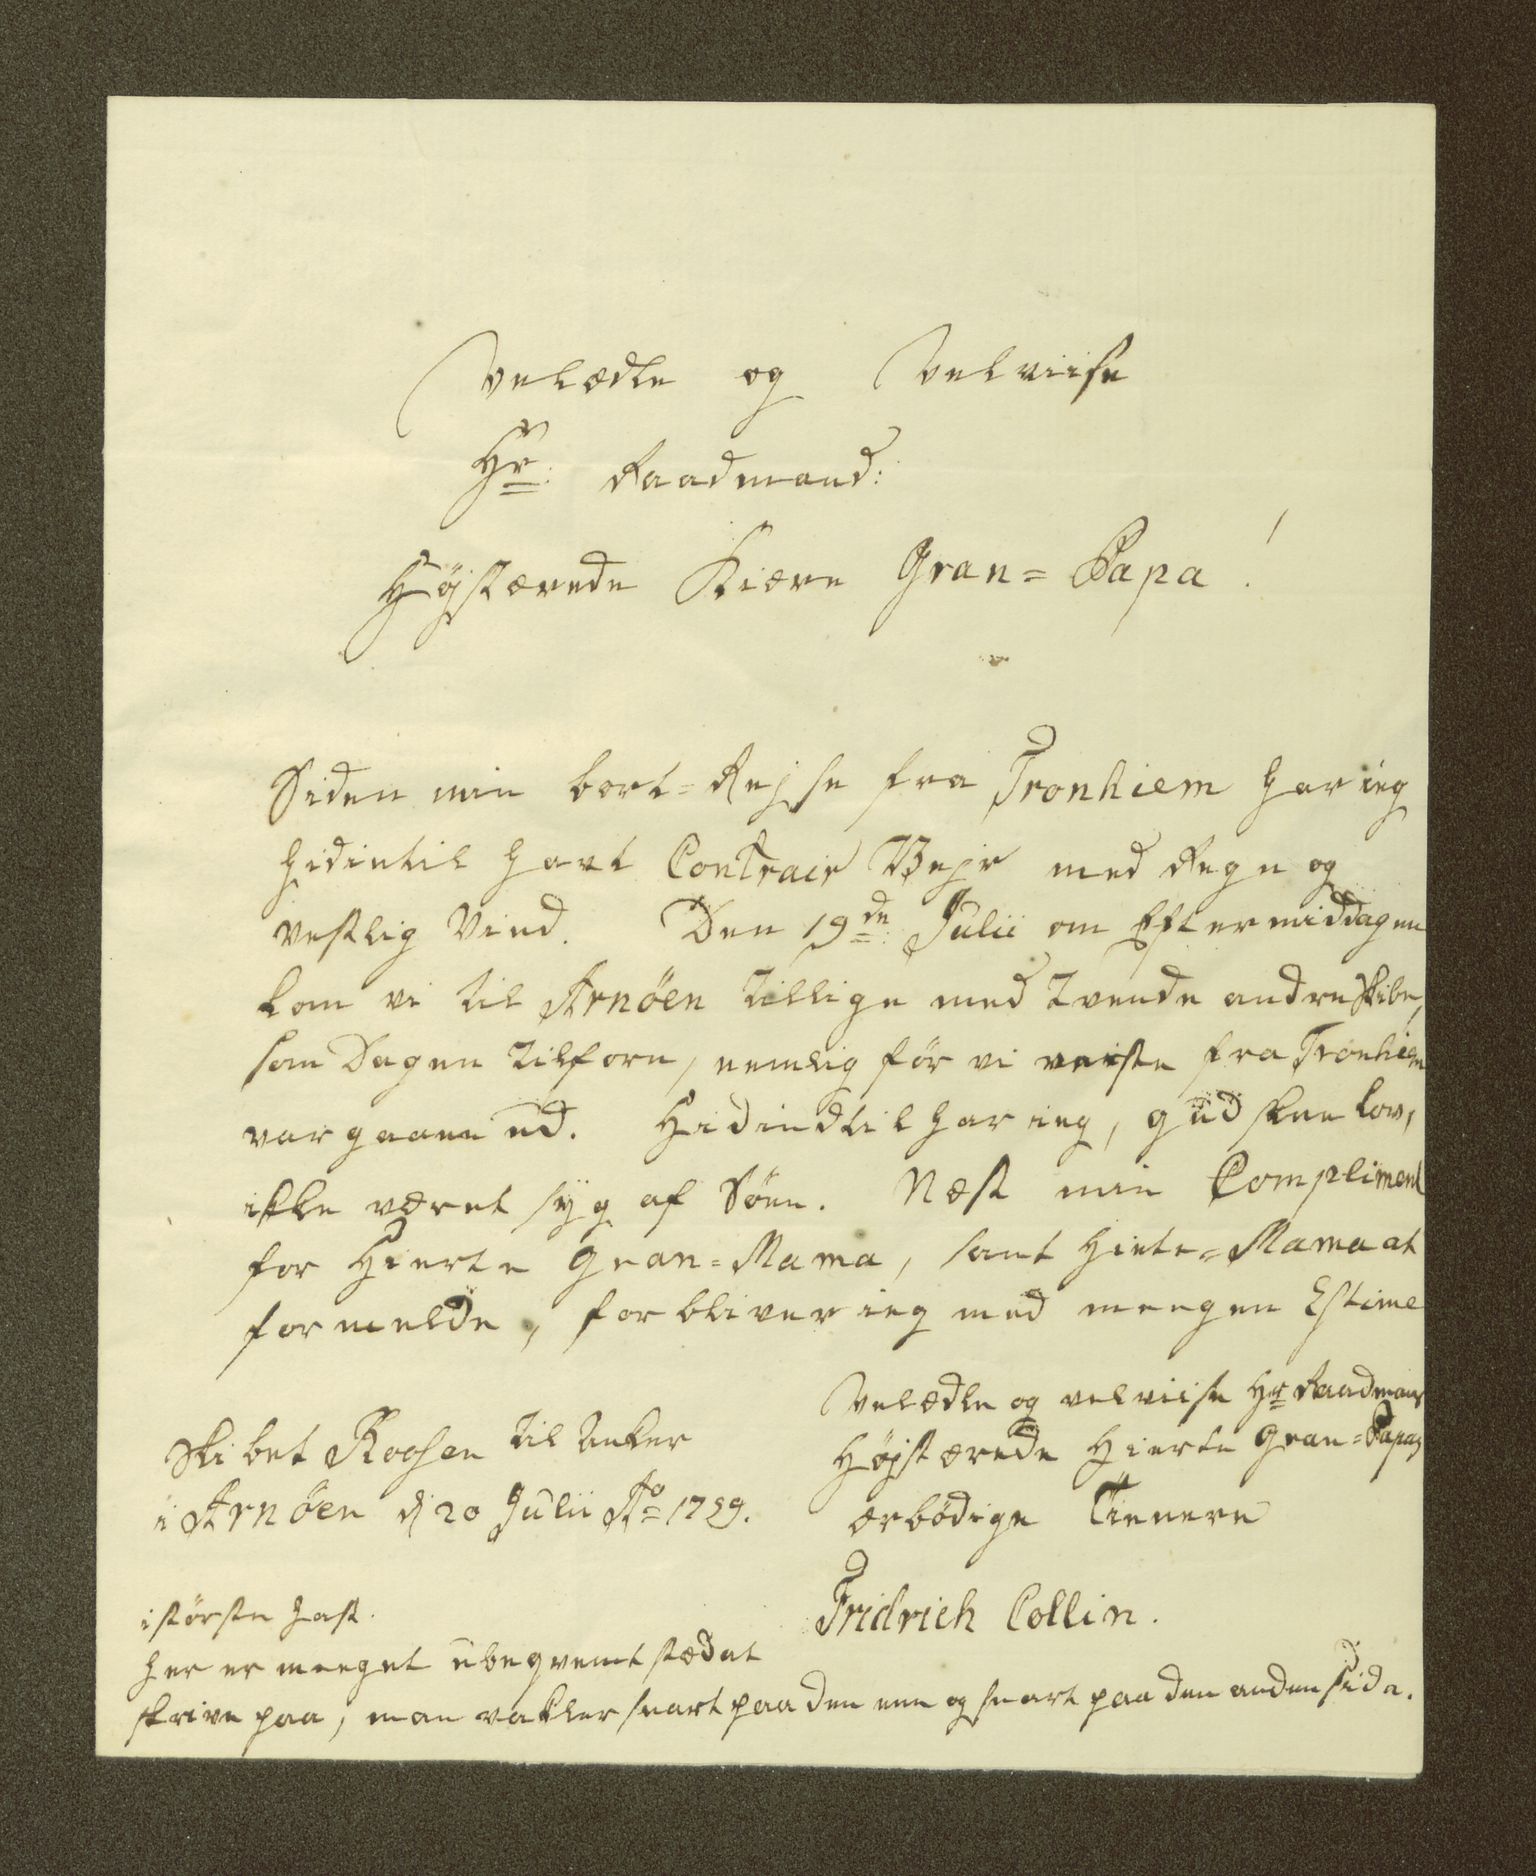 Velædle og Velviise
Hr: Raadmand:
Højstærede Kiære Gran=Papa!
Siden min bort=Rejse fra Tronhiem har ieg
hidintil havt Contrair Vejr med Regn og
vestlig Vind. Den 19de: Julii om Eftermiddagen
kom vi til Arnöen tillige med tvende andre Skibe,
som Dagen tilforn, nemlig för vi reiste fra Tronhiem
var gaaen ud. Hidindtil har ieg, Gud skee Lov,
ikke været syg af Söen. Næst min Compliment
for Hierte Gran=Mama, samt Hiete=Mama at
formelde, forbliver ieg med meegen Estime
Velædle og velviise Hr Raadmans
Højstærede Hierte Gran=Papas
ærbödige Tienere
Fridrich Collin.
Skibet Roosen til Anker
i Arnöen d 20 Julii Ao 1759.
i störste Hast.
her er meeget ubeqvemt stæd at
skrive paa, man vakler snart paa den ene og snart paa den anden Side.